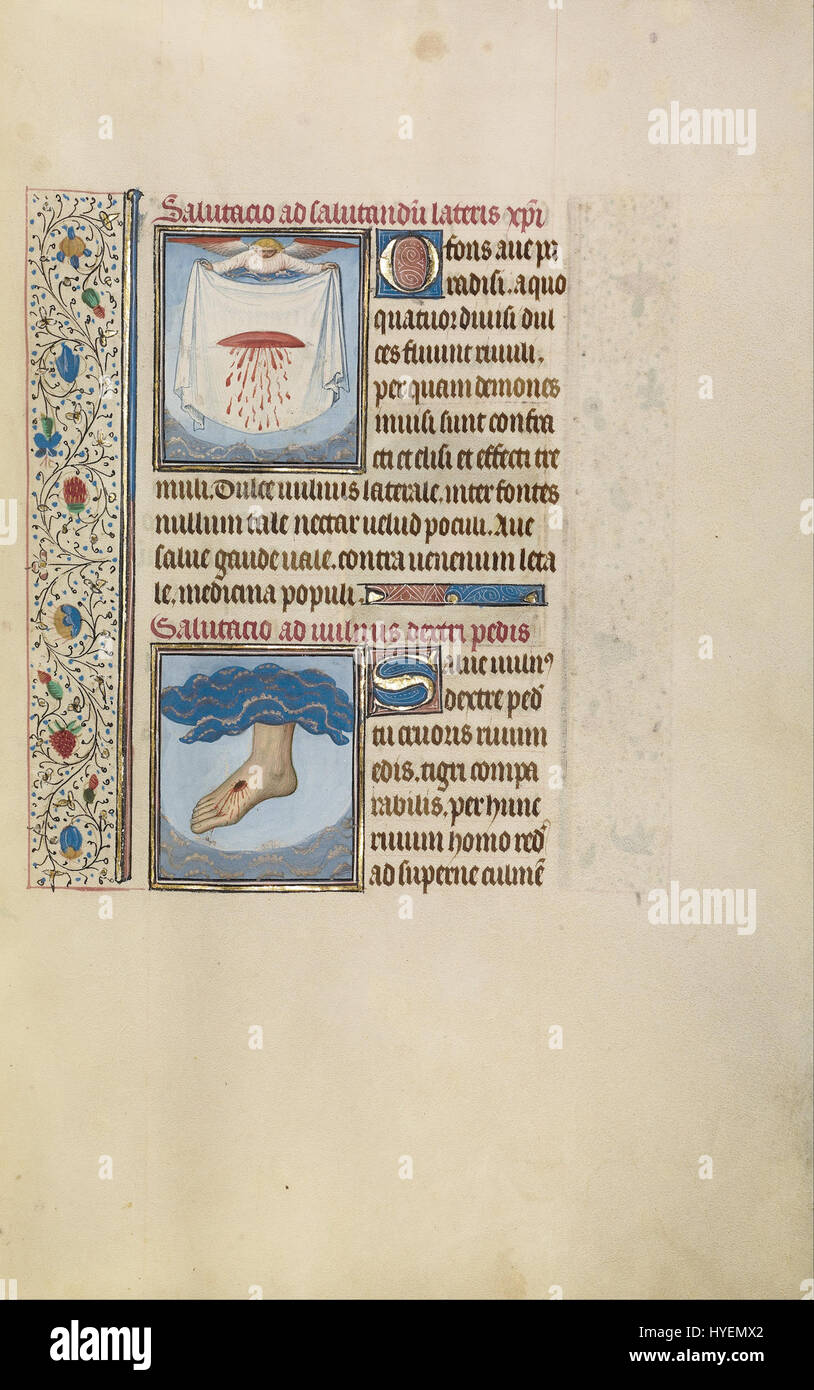 Salutacio ad salutandū lateris xp̄i
O fons aue pa
radisi. a quo
quatuor diuisi dul
ces fluunt riuuli.
per quam demones
inuisi sunt confra
cti et elisi et effecti tre
muli. Dulce uulnus laterale. inter fontes
nullum tale nectar uelud poculi. Aue
salue gaude uale. contra uenenum leta
le. medicina populi.
Salutacio ad uulnus dextri pedis
Salue uulnꝰ
dextre ped̄
tu cruoris riuum
edis. tigri compa
rabilis. per hunc
riuum homo red̄
ad superne culmē
alamy
alamy
Image ID: HYEMX2
www.alamy.com